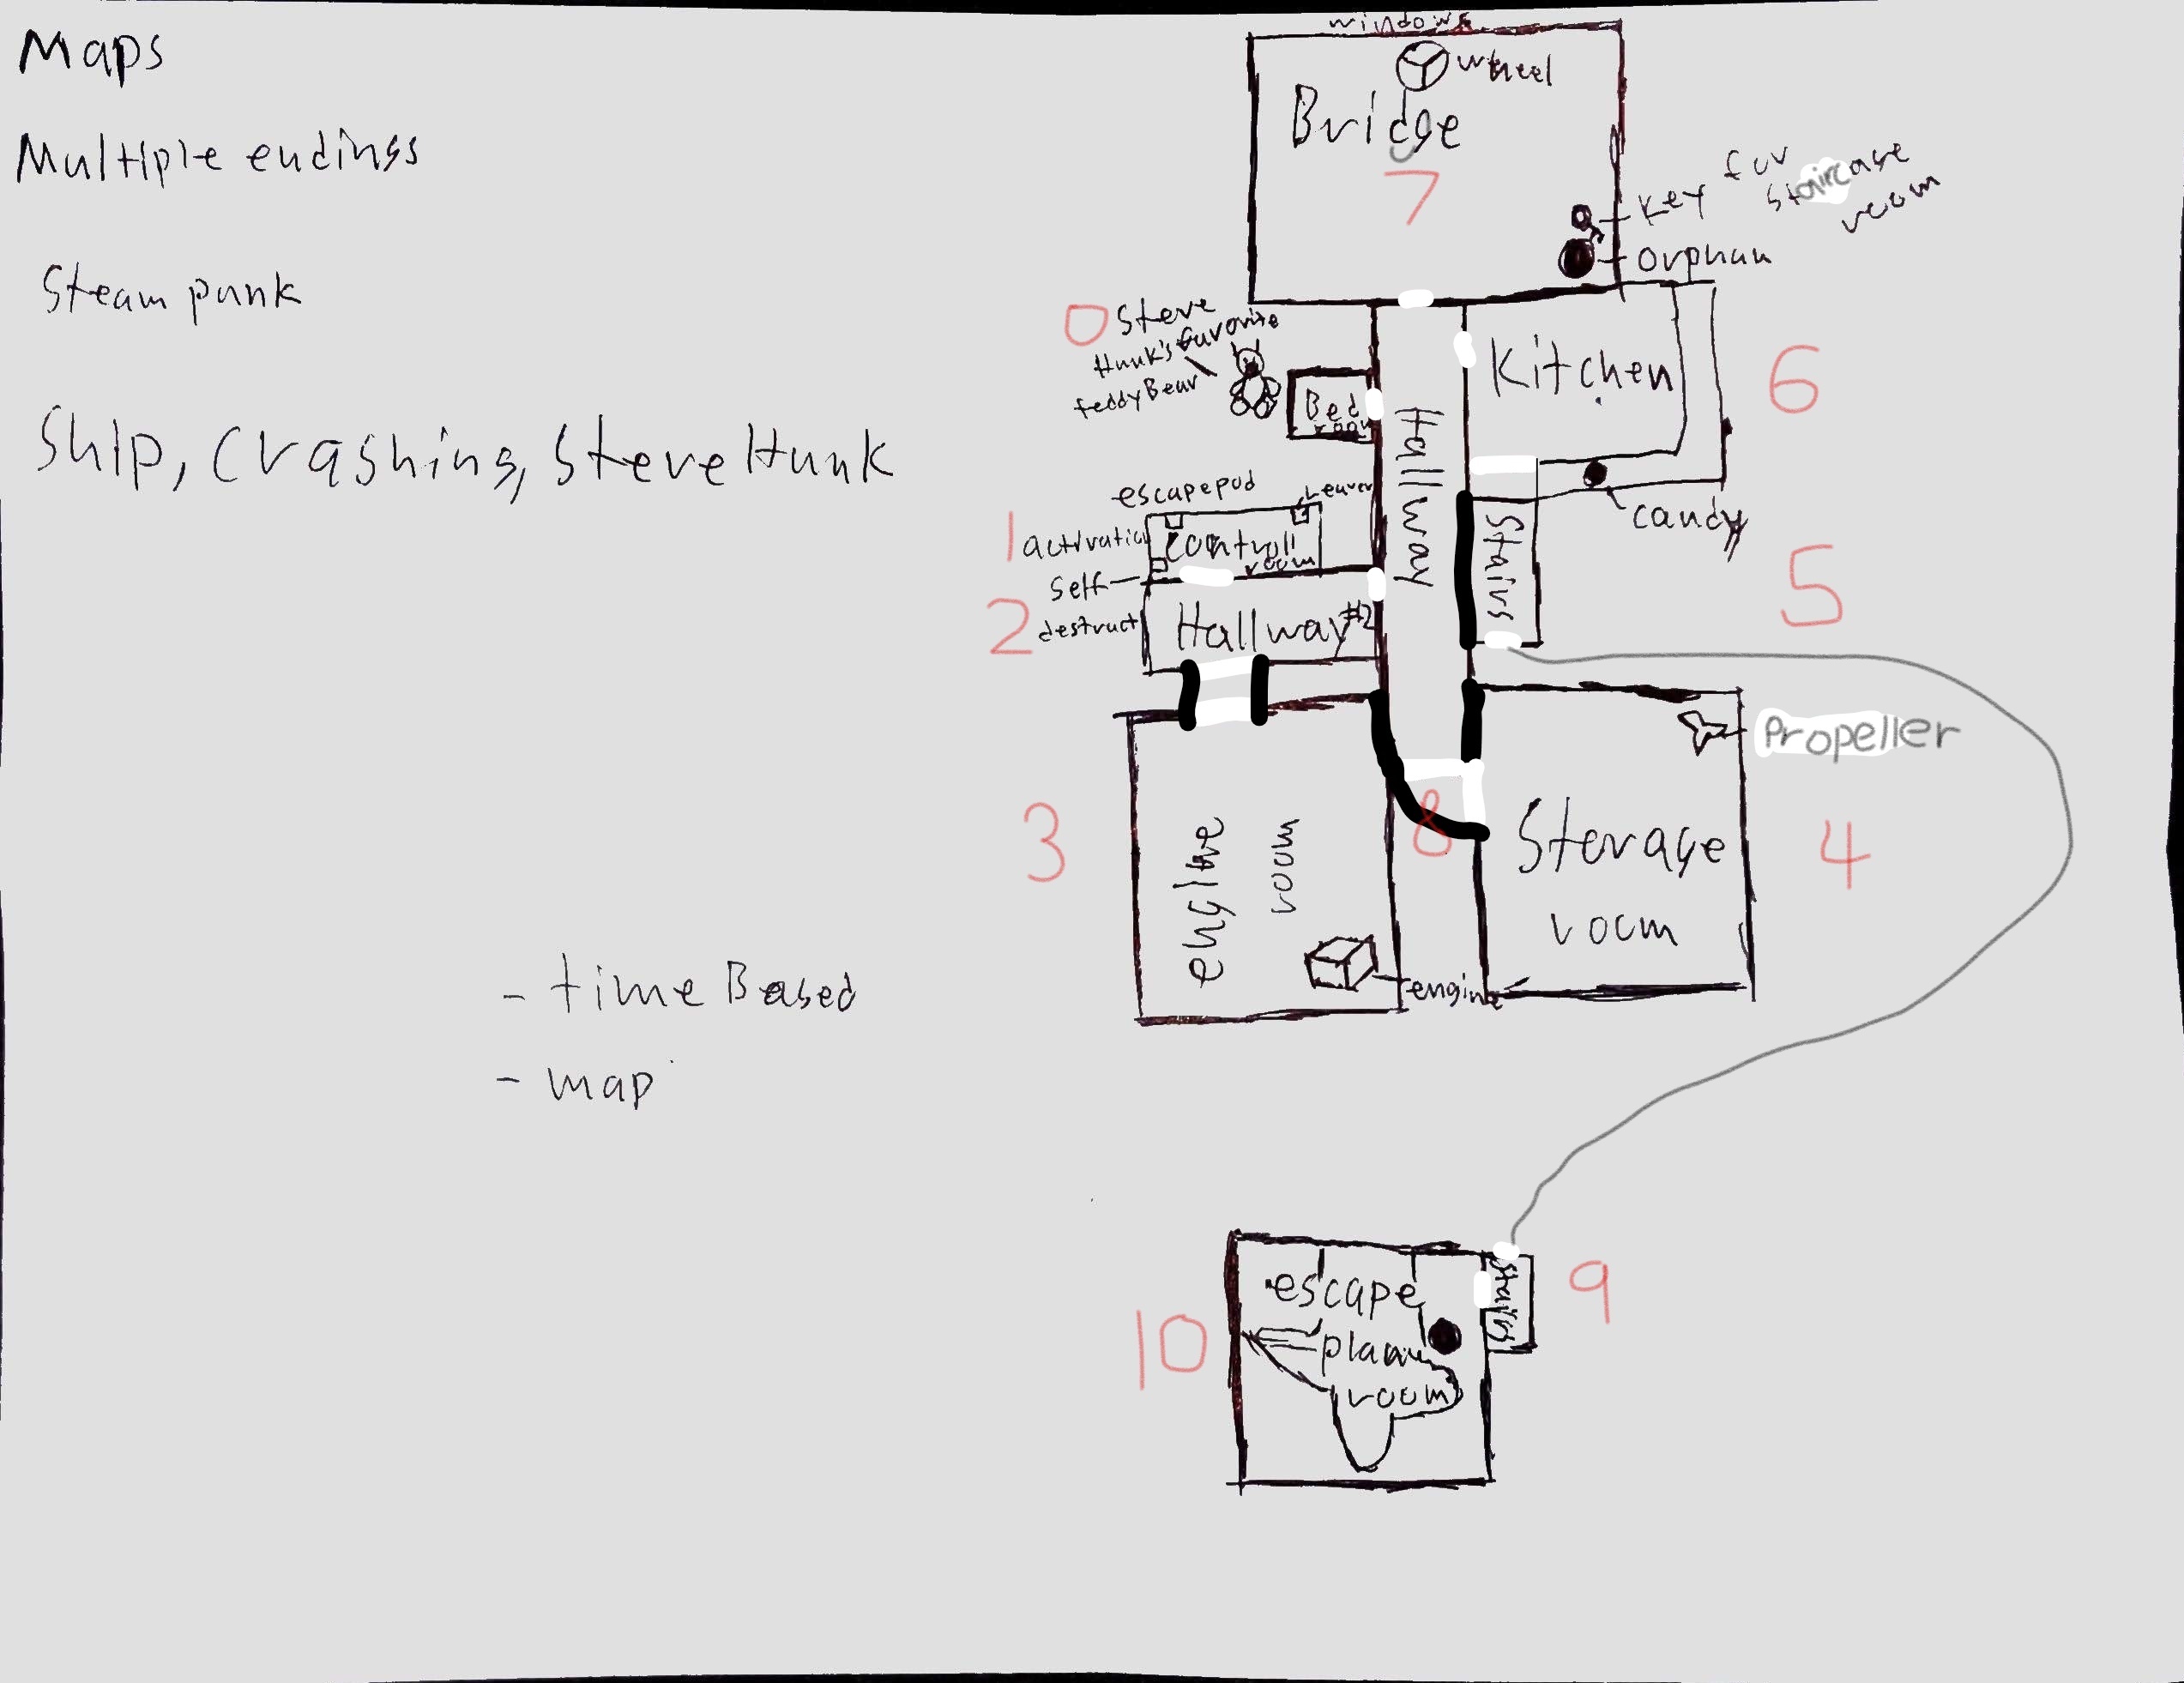 Maps
Multiple endings
Steam punk
Ship, Crashing, Steve Hunk
- time Based
- map
windows
wheel
Bridge
7
Key for
staircase
room
orphan
0
Steve
Hunk's favorite
teddy Bear
Bed
room
Hallway
Kitchen
6
candy
escapepod
Leaver
1
activation
Controll
room
self
destruct
2
Hallway #2
Stairs
5
3
engine
room
engine
8
Storage
room
Propeller
4
10
escape
plane
room
Stairs
9